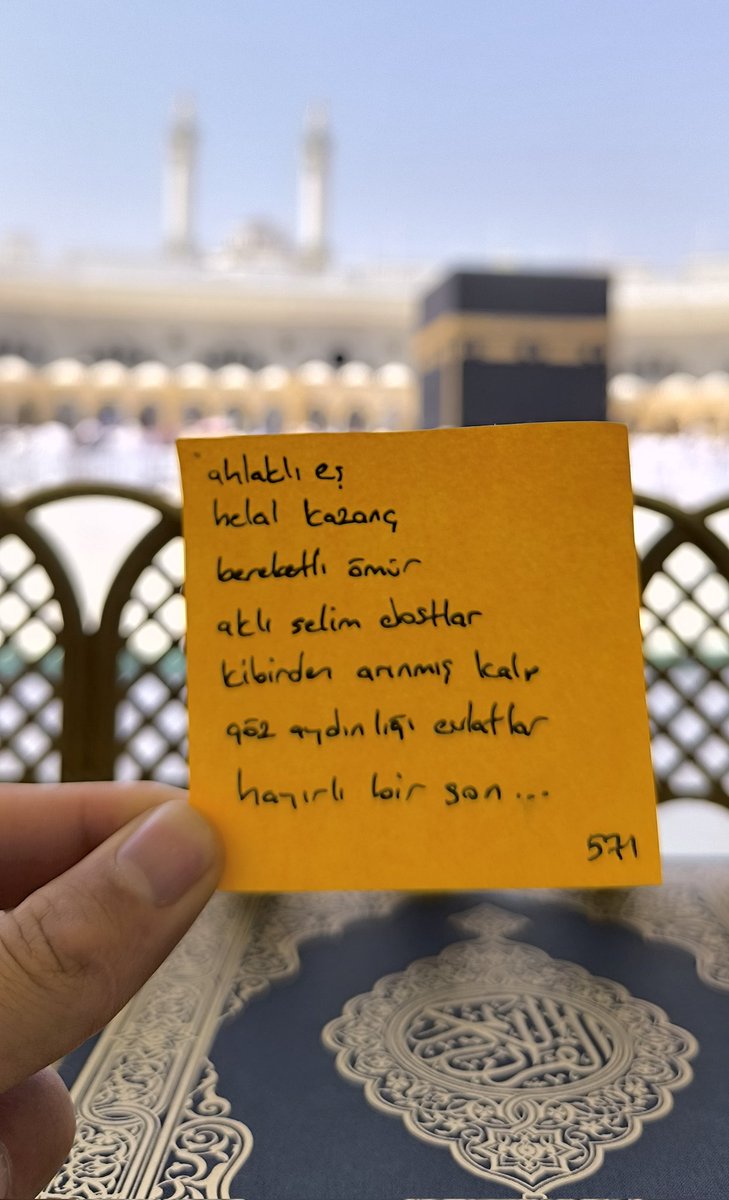 ahlaklı eş
helal kazanç
bereketli ömür
aklı selim dostlar
kibirden arınmış kalp
göz aydınlığı evlatlar
hayırlı bir son...
571
القرآن الكريم